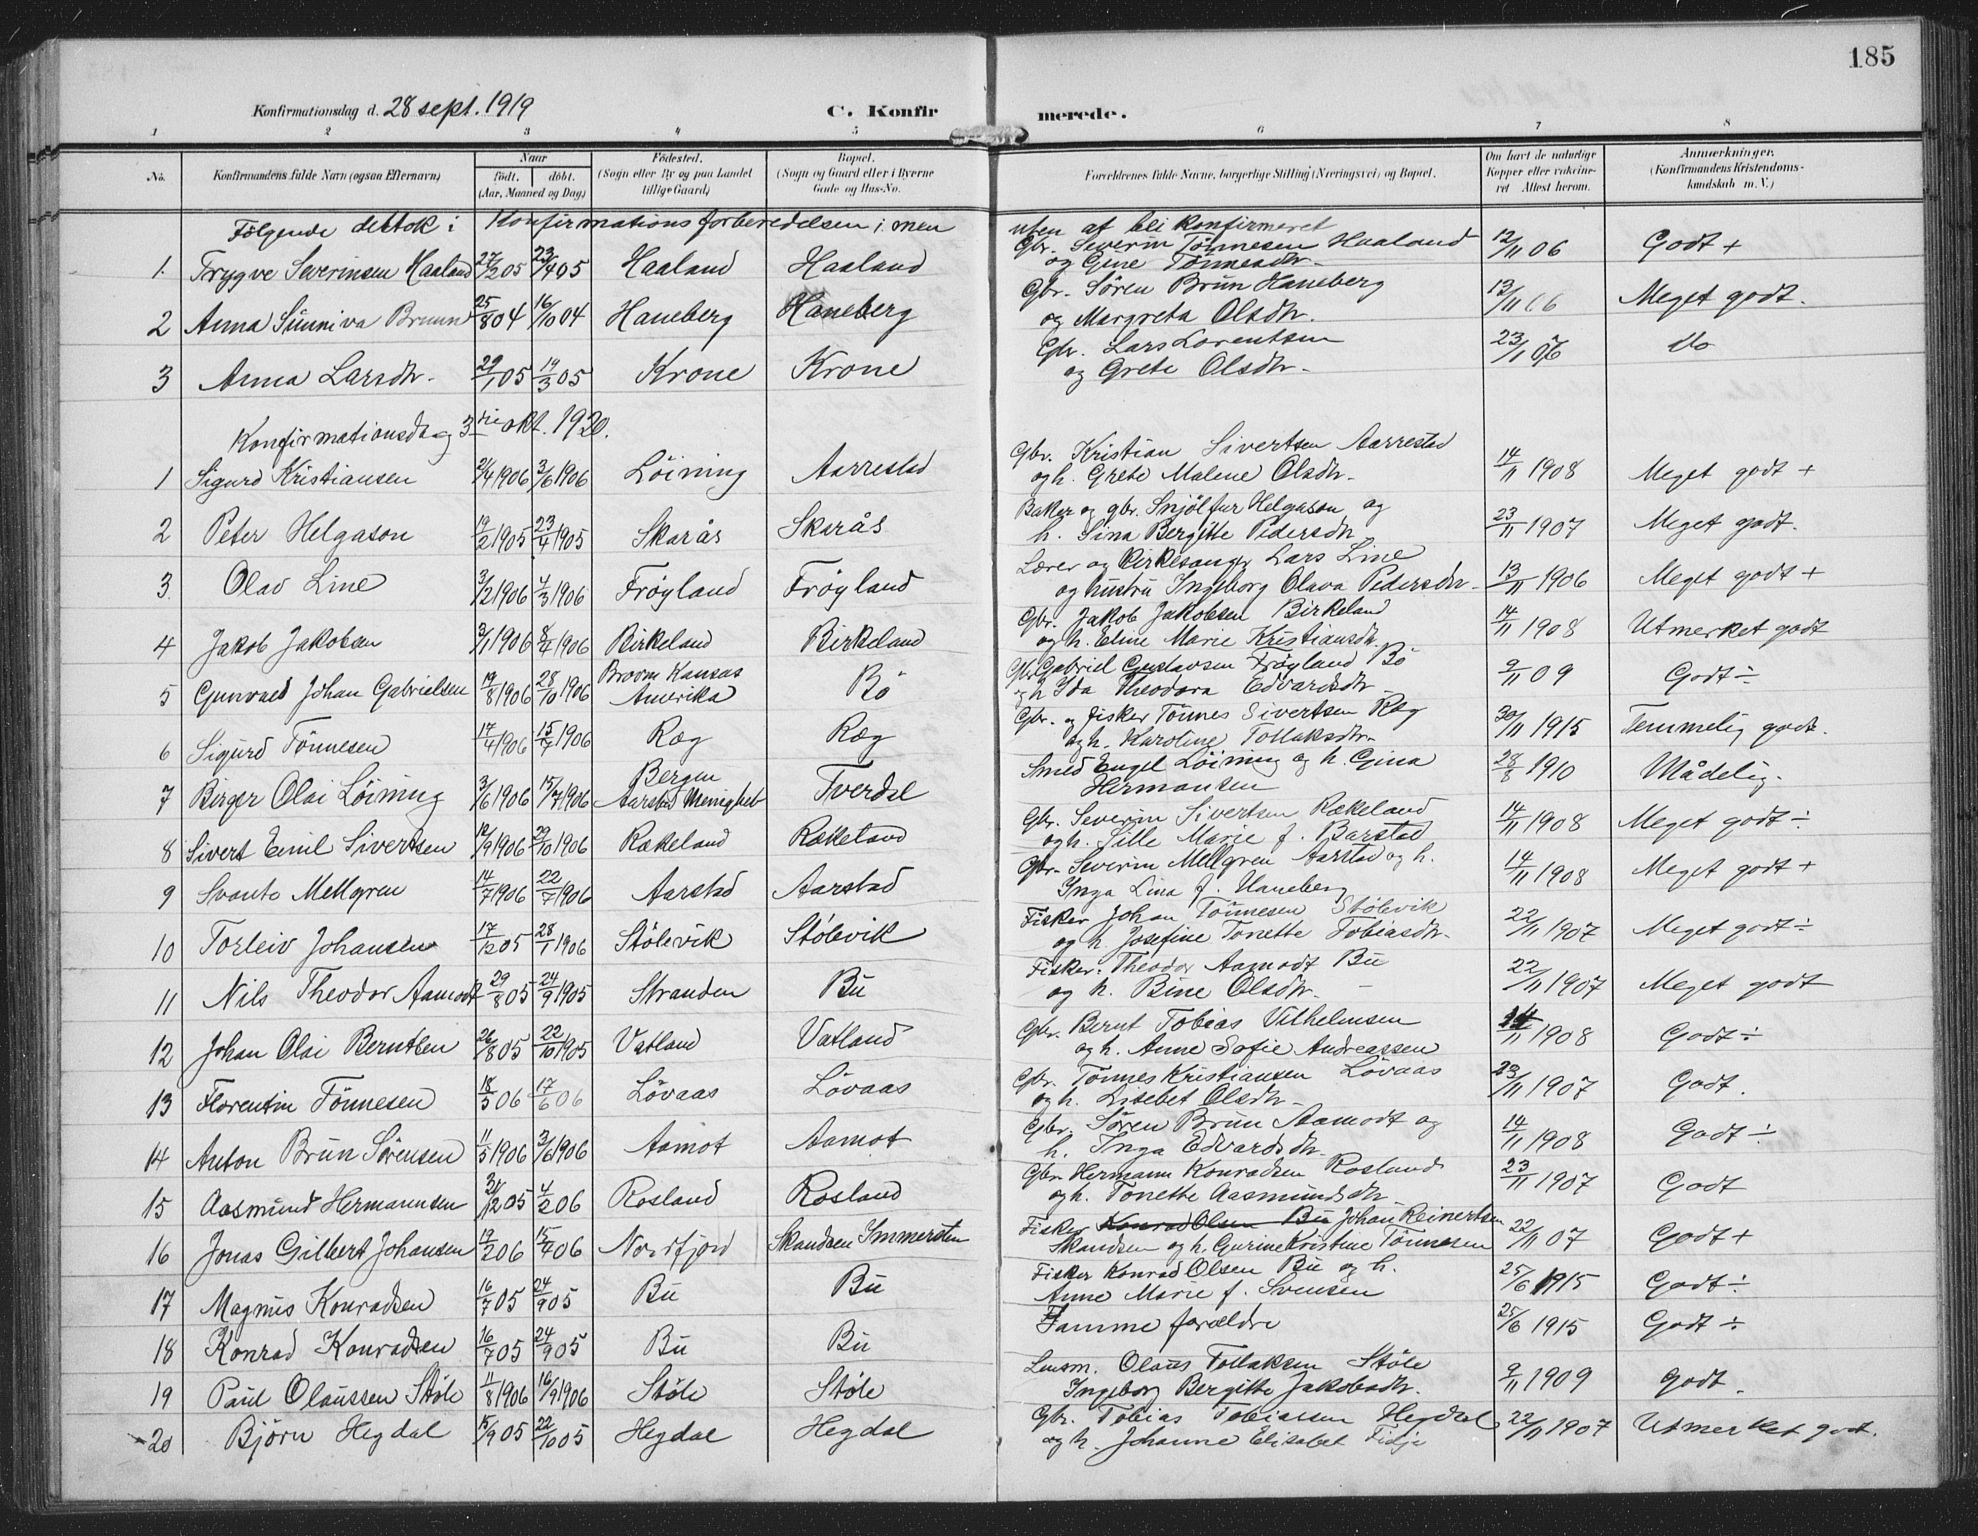 185
Konfirmationsdag d. 28 sept. 1919 C. Konfirmerede.
1 2 3 4 5 6 7 8
No. Konfirmandens fulde Navn (ogsaa Efternavn) Naar født. døbt. (Aar, Maaned og Dag) Fødested. (Sogn eller By og paa Landet tillige Gaard) Bopæl. (Sogn og Gaard eller i Byerne Gade og Hus-No. Forældrenes fulde Navne, borgerlige Stilling (Næringsvei) og Bopæl. Om havt de naturlige Kopper eller vakcineret. Attest herom. Anmærkninger. (Konfirmandens Kristendomskundskab m. V.)
Følgende deltok i Konfirmationsforberedelsen; men uten at bli konfirmeret
1. Trygve Severinsen Haaland 27/2 05 23/4 05 Haaland Haaland Gbr. Severin Tønnesen Haaland og Gine Tønnesdtr. 12/11 06 Godt +
2 Anna Sunniva Bruun 25/8 04 16/10 04 Haneberg Haneberg Gbr. Søren Brun Haneberg og Margreta Olsdtr. 13/11 06 Meget godt.
3 Anna Larsdtr. 29/1 05 19/3 05 Krone Krone Gbr. Lars Lorentsen og Grete Olsdtr. 23/11 06 do
Konfirmationsdag 3die okt. 1920.
1 Sigurd Kristiansen 21/4 1906 3/6 1906 Löining Aarrestad Gbr. Kristian Sivertsen Aarrestad og h. Grete Malene Olsdtr. 14/11 1908 Meget godt +
2 Peter Helgason 19/2 1905 23/4 1905 Skarås Skarås Baker og gbr. Snjölfur Helgason og h. Sina Bergitte Pedersdtr 23/11 1907 Meget godt.
3. Olav Line 3/2 1906 4/3 1906 Frøyland Frøyland Lærer og Kirkesanger Lars Line og hustru Ingeborg Olava Pedersdtr. 13/11 1906 Meget godt +
4 Jakob Jakobsen 3/1 1906 8/4 1906 Birkeland Birkeland Gbr. Jakob Jakobsen Birkeland og h. Eline Marie Kristiansdtr. 14/11 1908 Utmerket godt
5 Gunvald Johan Gabrielsen 19/8 1906 28/10 1906 Broom Kansas Amerika Bö Gbr Gabriel Gustavsen Frøyland Bö og h Ida Theodora Edvardsdtr 9/11 09 Godt ÷
6 Sigurd Tönnesen 17/4 1906 15/7 1906 Ræg Ræg Gbr. og fisker Tönnes Sivertsen Ræg og h. Karoline Tollaksdtr. 30/11 1915 Temmelig godt.
7 Birger Olai Löining 3/6 1906 15/7 1906 Bergen Aarstad Menighet Tverdal Smed Engel Löining og h. Gina Hermansen 28/8 1910 Mådelig.
8 Sivert Emil Sivertsen 12/9 1906 29/10 1906 Rækeland Rækeland Gbr. Severin Sivertsen Rækeland og h. Sille Marie f. Barstad 14/11 1908 Meget godt ÷
9 Svanto Mellgren 14/7 1906 22/7 1906 Aarstad Aarstad Gbr. Severin Mellgren Aarstad og h. Inga Lina f. Haneberg 14/11 1908 Meget godt +
10 Torleiv Johansen 17/12 05 28/1 1906 Stölevik Stölevik Fisker Johan Tönnesen Stölevik og h. Josefine Tonette Tobiasdtr. 22/11 1907 Meget godt ÷
11 Nils Theodor Aamodt 29/8 05 24/9 1905 Stranden Bu Fisker. Theodor Aamodt Bu og h. Bine Olsdtr. 22/11 1907 Meget godt
12 Johan Olai Berntsen 26/8 05 22/10 1905 Vatland Vatland Gbr. Bernt Tobias Vilhelmsen og h. Anne Sofie Andreassen 14/11 1908 Godt ÷
13 Florentin Tönnesen 18/5 06 17/6 06 Lövaas Lövaas Gbr. Tönnes Kristiansen Lövaas og h. Lisebet Olsdtr. 23/11 1907 Godt.
14 Anton Brun Sørensen 11/5 1906 3/6 1906 Aamot Aamot Gbr. Søren Brun Aamodt og h. Inga Edvardsdtr. 14/11 1908 Godt ÷
15 Aasmund Hermannsen 31/12 05 4/2 06 Rosland Rosland Gbr. Hermann Konradsen Rosland og h. Tonette Aasmundsdtr 23/11 1907 Godt
16 Jonas Gilbert Johansen 19/2 06 15/4 06 Nordfjord Skandsen Immersten Fisker Konrad Olsen Bu Johan Reinertsen Skandsen og h. Gurine Kristine Tönnesen 22/11 07 Godt +
17 Magnus Konradsen 16/7 05 24/9 05 Bu Bu Fisker Konrad Olsen Bu og h. Anne Marie f. Svensen 25/6 1915 Godt ÷
18 Konrad Konradsen 16/7 05 24/9 05 Bu Bu Samme forældre 25/6 1915 Godt ÷
19 Paul Olaussen Støle 11/8 1906 16/9 1906 Støle Støle Lensm. Olaus Tollaksen Støle Ingeborg Bergitte Jakobsdtr. 9/11 1909 Godt.
20 Bjørn Hegdal 15/9 05 22/10 05 Hegdal Hegdal Gbr. Tobias Tobiassen Hegdal og h. Johanne Elisabet Fidje 22/11 1907 Utmerket godt.